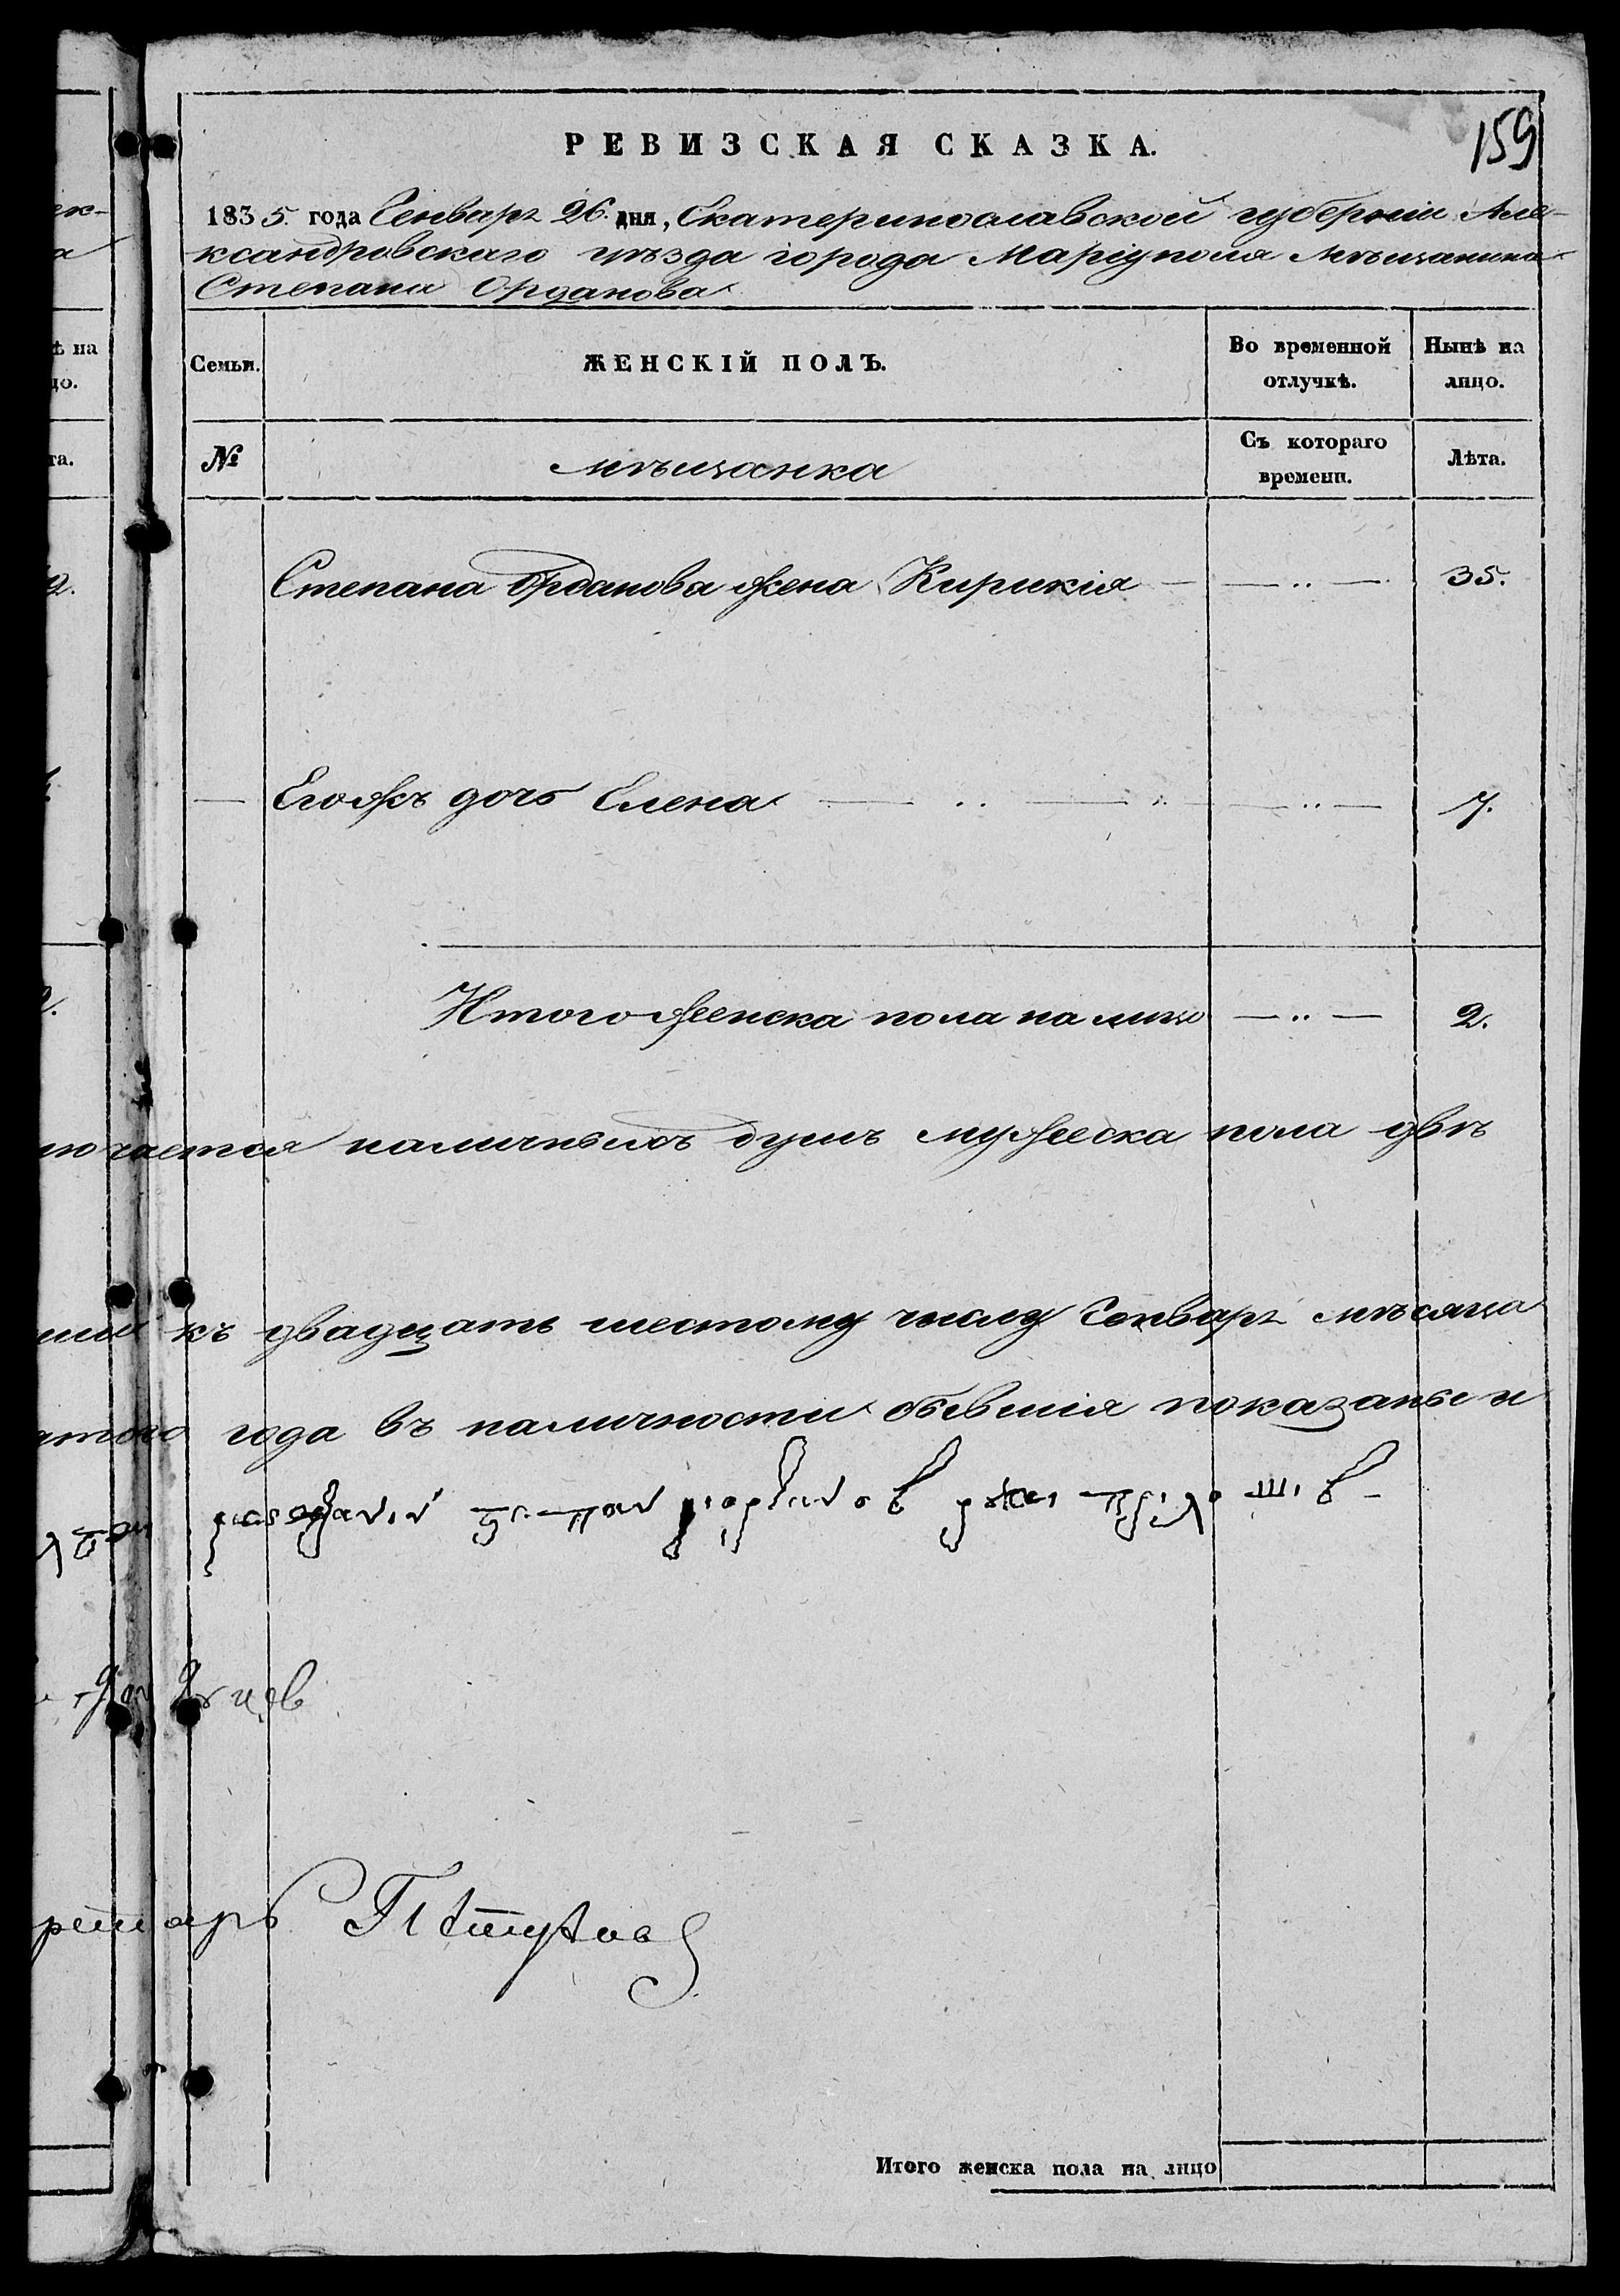 159
РЕВИЗСКАЯ СКАЗКА.
1835. года Генваря 26. дня, Екатеринославской губерніи Але-
ксандровскаго уѣзда города Маріуполя мѣщанина
Степана Орданова
Семьи.
ЖЕНСКІЙ ПОЛЪ.
Во временной отлучкѣ.
Нынѣ на лицо.
№
мѣщанка
Съ котораго времени.
Лѣта.
Степана Орданова жена Кирикія — — .. — 35.
— Егожъ дочь Елена — .. — .. — .. — 7.
Итого женска пола на лицо — .. — 2.
наличныхъ душъ мужеска пола двѣ
къ двадцать шестому числу Генваря мѣсяца
года въ наличности бывшія показаны и
Итого женска пола на лицо